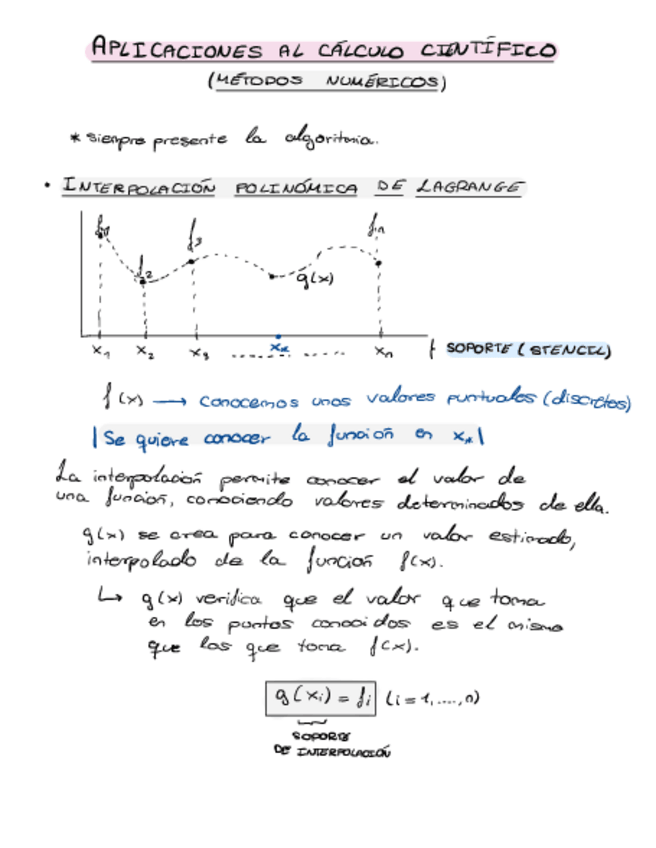 APLICACIONES AL CÁLCULO CIENTÍFICO
(MÉTODOS NUMÉRICOS)
* siempre presente la algoritmia.
• INTERPOLACIÓN POLINÓMICA DE LAGRANGE
f1 f2 f3 fn
g(x)
x1 x2 x3 ........ x* ..... xn
SOPORTE (STENCIL)
f(x) → conocemos unos valores puntuales (discretos)
| Se quiere conocer la función en x* |
La interpolación permite conocer el valor de
una función, conociendo valores determinados de ella.
g(x) se crea para conocer un valor estimado,
interpolado de la función f(x).
↳ g(x) verifica que el valor que toma
en los puntos conocidos es el mismo
que los que toma f(x).
g(xi) = fi (i = 1, ...., n)
SOPORTE
DE INTERPOLACIÓN